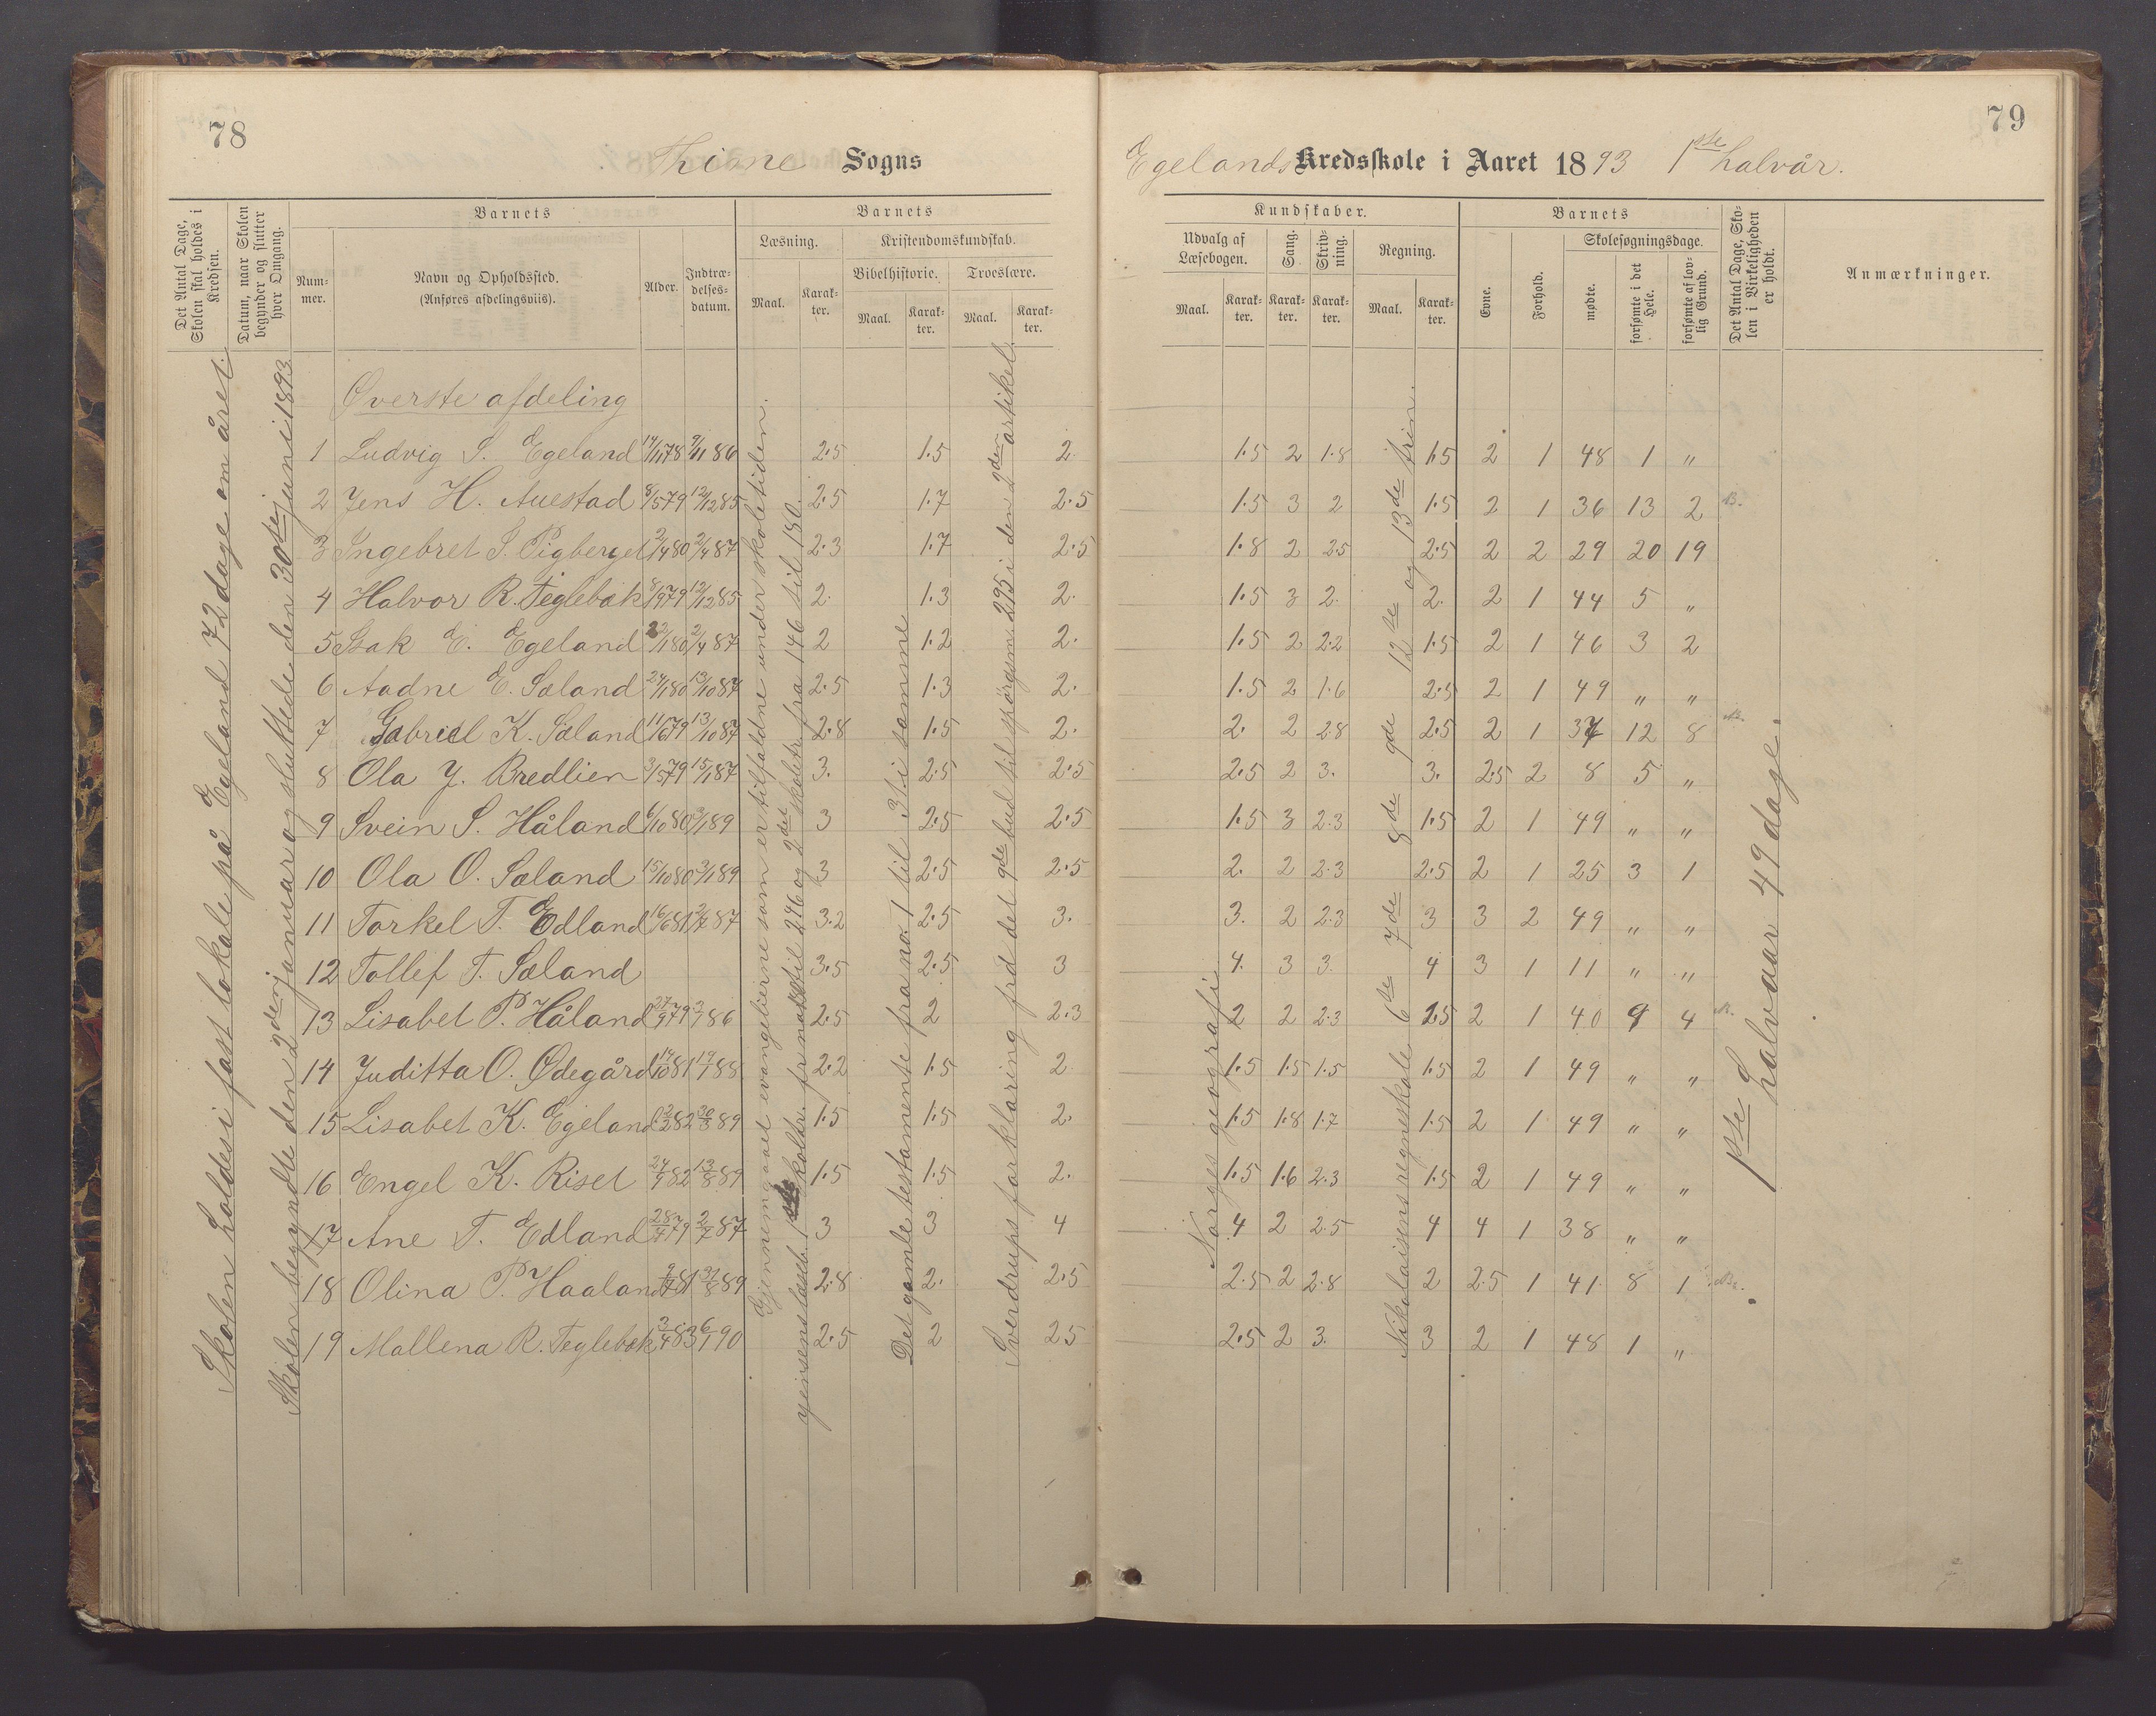 78
Thime Sogns
Det Antal Dage, Skolen skal holdes i Kredsen.
Datum, naar Skolen begynder og slutter hver Omgang.
Barnets
Num-mer.
Navn og Opholdssted.
(Anføres afdelingsviis).
Alder.
Indtræ-delses-datum.
Barnets
Læsning.
Maal.
Karak-ter.
Kristendomskundskab.
Bibelhistorie.
Troeslære.
Maal.
Karak-ter.
Maal.
Karak-ter.
79
Egelands Kredsskole i Aaret 1893 1ste halvår.
Kundskaber.
Udvalg af Læsebogen.
Sang.
Skriv-ning.
Regning.
Maal.
Karak-ter.
Karak-ter.
Karak-ter.
Maal.
Karak-ter.
Barnets
Evne.
Forhold.
Skolesøgningsdage.
mødte.
forsømte i det Hele.
forsømte af lov-lig Grund.
Det Antal Dage, Sko-len i Virkeligheden er holdt.
Anmærkninger.
Skolen holdes i fast lokale på Egeland 72 dage om året.
Skolen begyndte den 2den januar og sluttede den 30te juni 1893
Øverste afdeling
1 Ludvig S. Egeland 14/11 78 9/11 86 2.5 1.5 2. 1.5 2 1.8 1.5 2 1 48 1 "
2 Jens H. Auestad 8/5 79 12/12 85 2.5 1.7 2.5 1.5 3 2 1.5 2 1 36 13 2
3 Ingebret S. Pigberget 2/4 80 2/4 87 2.3 1.7 2.5 1.8 2 2.5 2.5 2 2 29 20 19
4 Halvor R. Teglebak 8/9 79 12/12 85 2. 1.3 2. 1.5 3 2. 2. 2 1 44 5 "
5 Isak E. Egeland 2/1 80 2/4 87 2 1.2 2. 1.5 2 2.2 1.5 2 1 46 3 2
6 Aadne E. Sæland 24/1 80 13/10 87 2.5 1.3 2. 1.5 2 1.6 2.5 2 1 49 " "
7 Gabriel K. Sæland 11/6 79 13/10 87 2.8 1.5 2. 2. 2 2.8 2.5 2 1 37 12 8
8 Ola J. Bredlien 3/5 79 15/1 87 3. 2.5 2.5 2.5 2 3. 3. 2.5 2 8 5 "
9 Svein S. Håland 6/10 80 3/1 89 3 2.5 2.5 1.5 3 2.3 1.5 2 1 49 " "
10 Ola O. Sæland 15/10 80 3/1 89 3 2.5 2.5 2. 2 2.3 2.5 2 1 25 3 1
11 Torkel T. Edland 16/6 81 2/7 87 3.2 2.5 3. 3. 2 2.3 3 3 2 49 " "
12 Tollef T. Sæland 3.5 2.5 3 4. 3 3. 4 3 1 11 " "
13 Lisabet P. Håland 27/9 79 3/1 86 2.5 2 2.3 2 2 2.3 2.5 2 1 40 9 4
14 Juditta O. Ødegård 14/10 81 17/7 88 2.2 1.5 2. 1.5 1.5 1.5 1.5 2 1 49 " "
15 Lisabet K. Egeland 2/2 82 30/8 89 1.5 1.5 2. 1.5 1.8 1.7 1.5 2 1 49 " "
16 Engel K. Riset 24/9 82 13/8 89 1.5 1.5 2. 1.5 1.6 2.3 1.5 2 1 49 " "
17 Ane T. Edland 28/4 79 2/7 87 3 3 4 4 2 2.5 4 4 1 38 " "
18 Olina P. Haaland 2/7 81 31/8 89 2.8 2. 2.5 2.5 2 2.8 2 2.5 1 41 8 1
19 Mallena R. Teglebak 3/4 83 6/1 90 2.5 2 2.5 2.5 2 3. 3 2 1 48 1 "
Gjennemgaaet evangelierne som er tilfaldne under skoletiden.
Jensens læseb. 1 skoletr. fr til 246 og 2det skoletr. fra 146 til 180.
Det gamle testamente fra no. 1 til 31 i samme
Svendrups forklaring fra det 9de bud til spörgsm. 295 i den 2den artikel.
Norges geografi
Nikolaisens regneskole 6te 7de 8de 9de 12te og 13de trin.
1ste halvaar 49 dage.